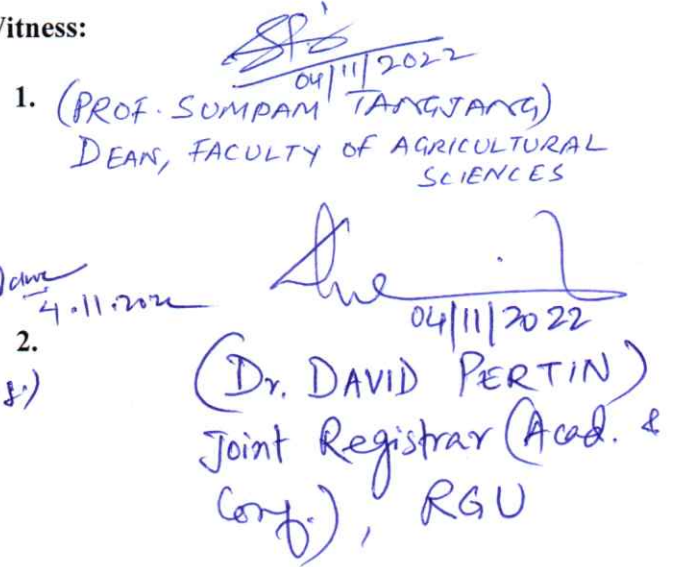 Witness:
04/11/2022
1. (PROF. SUMPAM TANGJANG)
DEAN, FACULTY OF AGRICULTURAL
SCIENCES
4.11.2022
04/11/2022
2.
(Dr. DAVID PERTIN)
Joint Registrar (Acad. &
Conf.), RGU